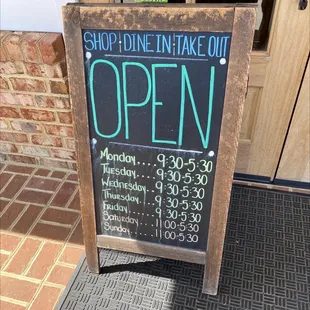 SHOP · DINE IN · TAKE OUT
OPEN
Monday....9:30-5:30
Tuesday....9:30-5:30
Wednesday...9:30-5:30
Thursday....9:30-5:30
Friday......9:30-5:30
Saturday.....11:00-5:30
Sunday......11:00-5:30